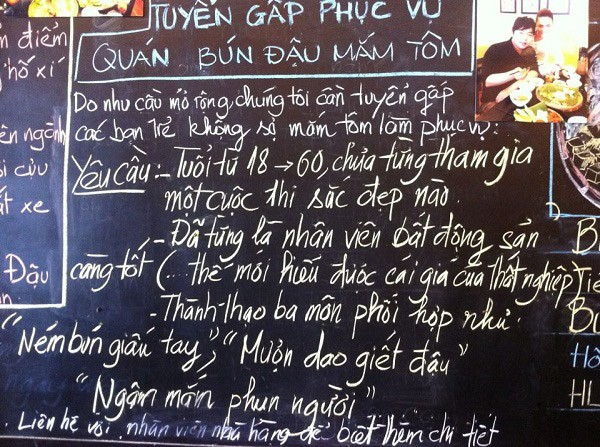 TUYỂN GẤP PHỤC VỤ
QUÁN BÚN ĐẬU MẮM TÔM
Do nhu cầu mở rộng, chúng tôi cần tuyển gấp
các bạn trẻ không sợ mắm tôm làm phục vụ:
Yêu cầu:- Tuổi từ 18 → 60, chưa từng tham gia
một cuộc thi sắc đẹp nào.
- Đã từng là nhân viên bất động sản
càng tốt (... thế mới hiểu được cái giá của thất nghiệp)
- Thành thạo ba môn phối hợp như:
"Ném bún giấu tay", "Mượn dao giết đậu"
"Ngậm mắm phun người"
. Liên hệ với nhân viên nhà hàng để biết thêm chi tiết
điểm
hố xí
ngành
cửu
xe
Đậu
B
Bu
HL